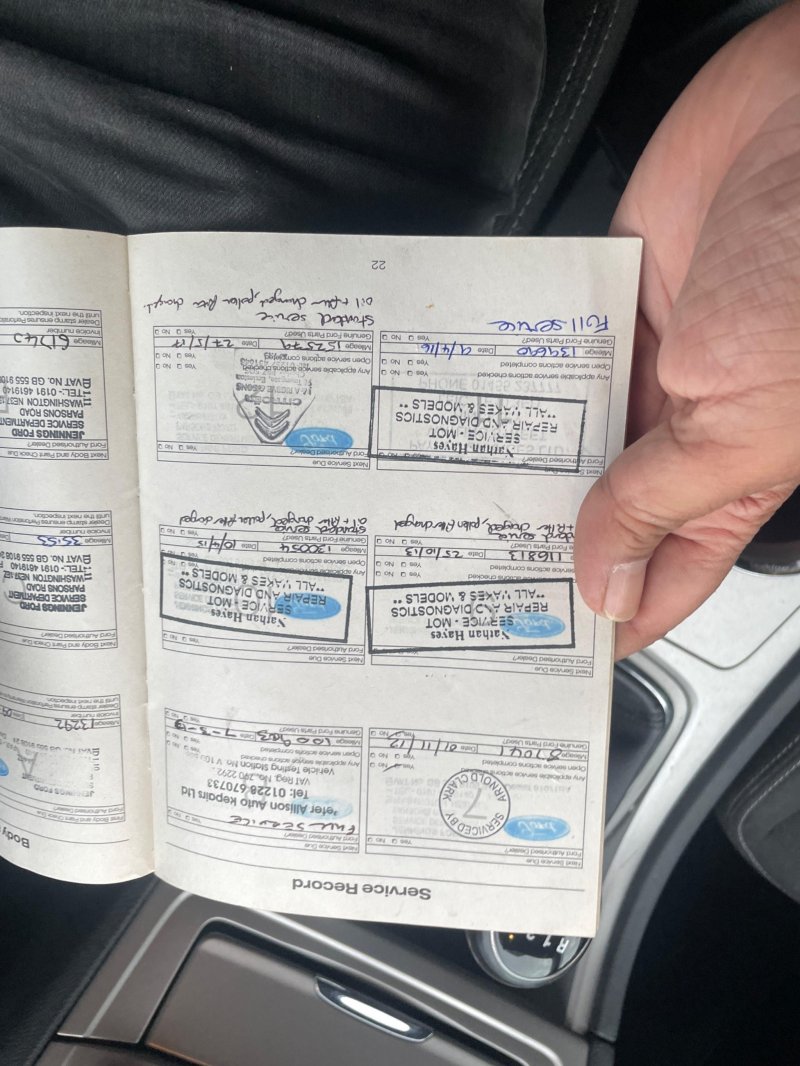 Service Record
Next Service Due
Ford Authorised Dealer? Yes No
SERVICED BY
7
ARNOLD CLARK
Any applicable service actions checked Yes No
Open service actions completed Yes No
Mileage 87041 Date 01/11/12
Genuine Ford Parts Used? Yes No
FULL SERVICE
Peter Allison Auto Repairs Ltd
Tel: 01228 670733
VAT Reg No.
Vehicle Testing Station
Open service actions completed
Mileage 100983 Date
Genuine Ford Parts Used? Yes No
Next Service Due
Ford Authorised Dealer?
Nathan Hayes
SERVICE - MOT
REPAIR AND DIAGNOSTICS
**ALL MAKES & MODELS **
Open service actions completed Yes No
118613 Date 25/10/13
Genuine Ford Parts Used? Yes No
service
filter changed, pollen filter changed
Next Service Due
Ford Authorised Dealer? Yes No
Nathan Hayes
SERVICE - MOT
REPAIR AND DIAGNOSTICS
**ALL MAKES & MODELS **
Mileage 130054 Date 10/4/15
Genuine Ford Parts Used? Yes No
standard service
oil + filter changed, pollen filter changed
Next Service Due
Ford Authorised Dealer?
Nathan Hayes
SERVICE - MOT
REPAIR AND DIAGNOSTICS
**ALL MAKES & MODELS **
Any applicable service actions checked
Open service actions completed Yes No
Mileage 139690 Date 9/4/16
Genuine Ford Parts Used? Yes No
Full service
Next Service Due
Ford Authorised Dealer? Yes No
Ford
Any applicable service actions checked Yes No
Open service actions completed Yes No
Mileage 152579 Date 27/5/17
Genuine Ford Parts Used? Yes No
standard service
oil + filter changed, pollen filter changed
22
Body
First Body and Paint Check Due
Ford Authorised Dealer?
JENNINGS FORD
Mileage 13292
Invoice number
Dealer stamp ensures Perforation
until the next inspection.
Next Body and Paint Check Due
Ford Authorised Dealer?
JENNINGS FORD
SERVICE DEPARTMENT
PARSONS ROAD
WASHINGTON NE37 1EZ
TEL:- 0191 4619191
VAT No. GB 555 9108
Mileage 35155
Invoice number
Dealer stamp ensures Perforation
until the next inspection.
Next Body and Paint Check Due
Ford Authorised Dealer?
JENNINGS FORD
SERVICE DEPARTMENT
PARSONS ROAD
WASHINGTON NE37 1EZ
TEL:- 0191 461914
VAT No. GB 555 9108
Mileage 61743
Invoice number
Dealer stamp ensures Perforation
until the next inspection.
R 1 2